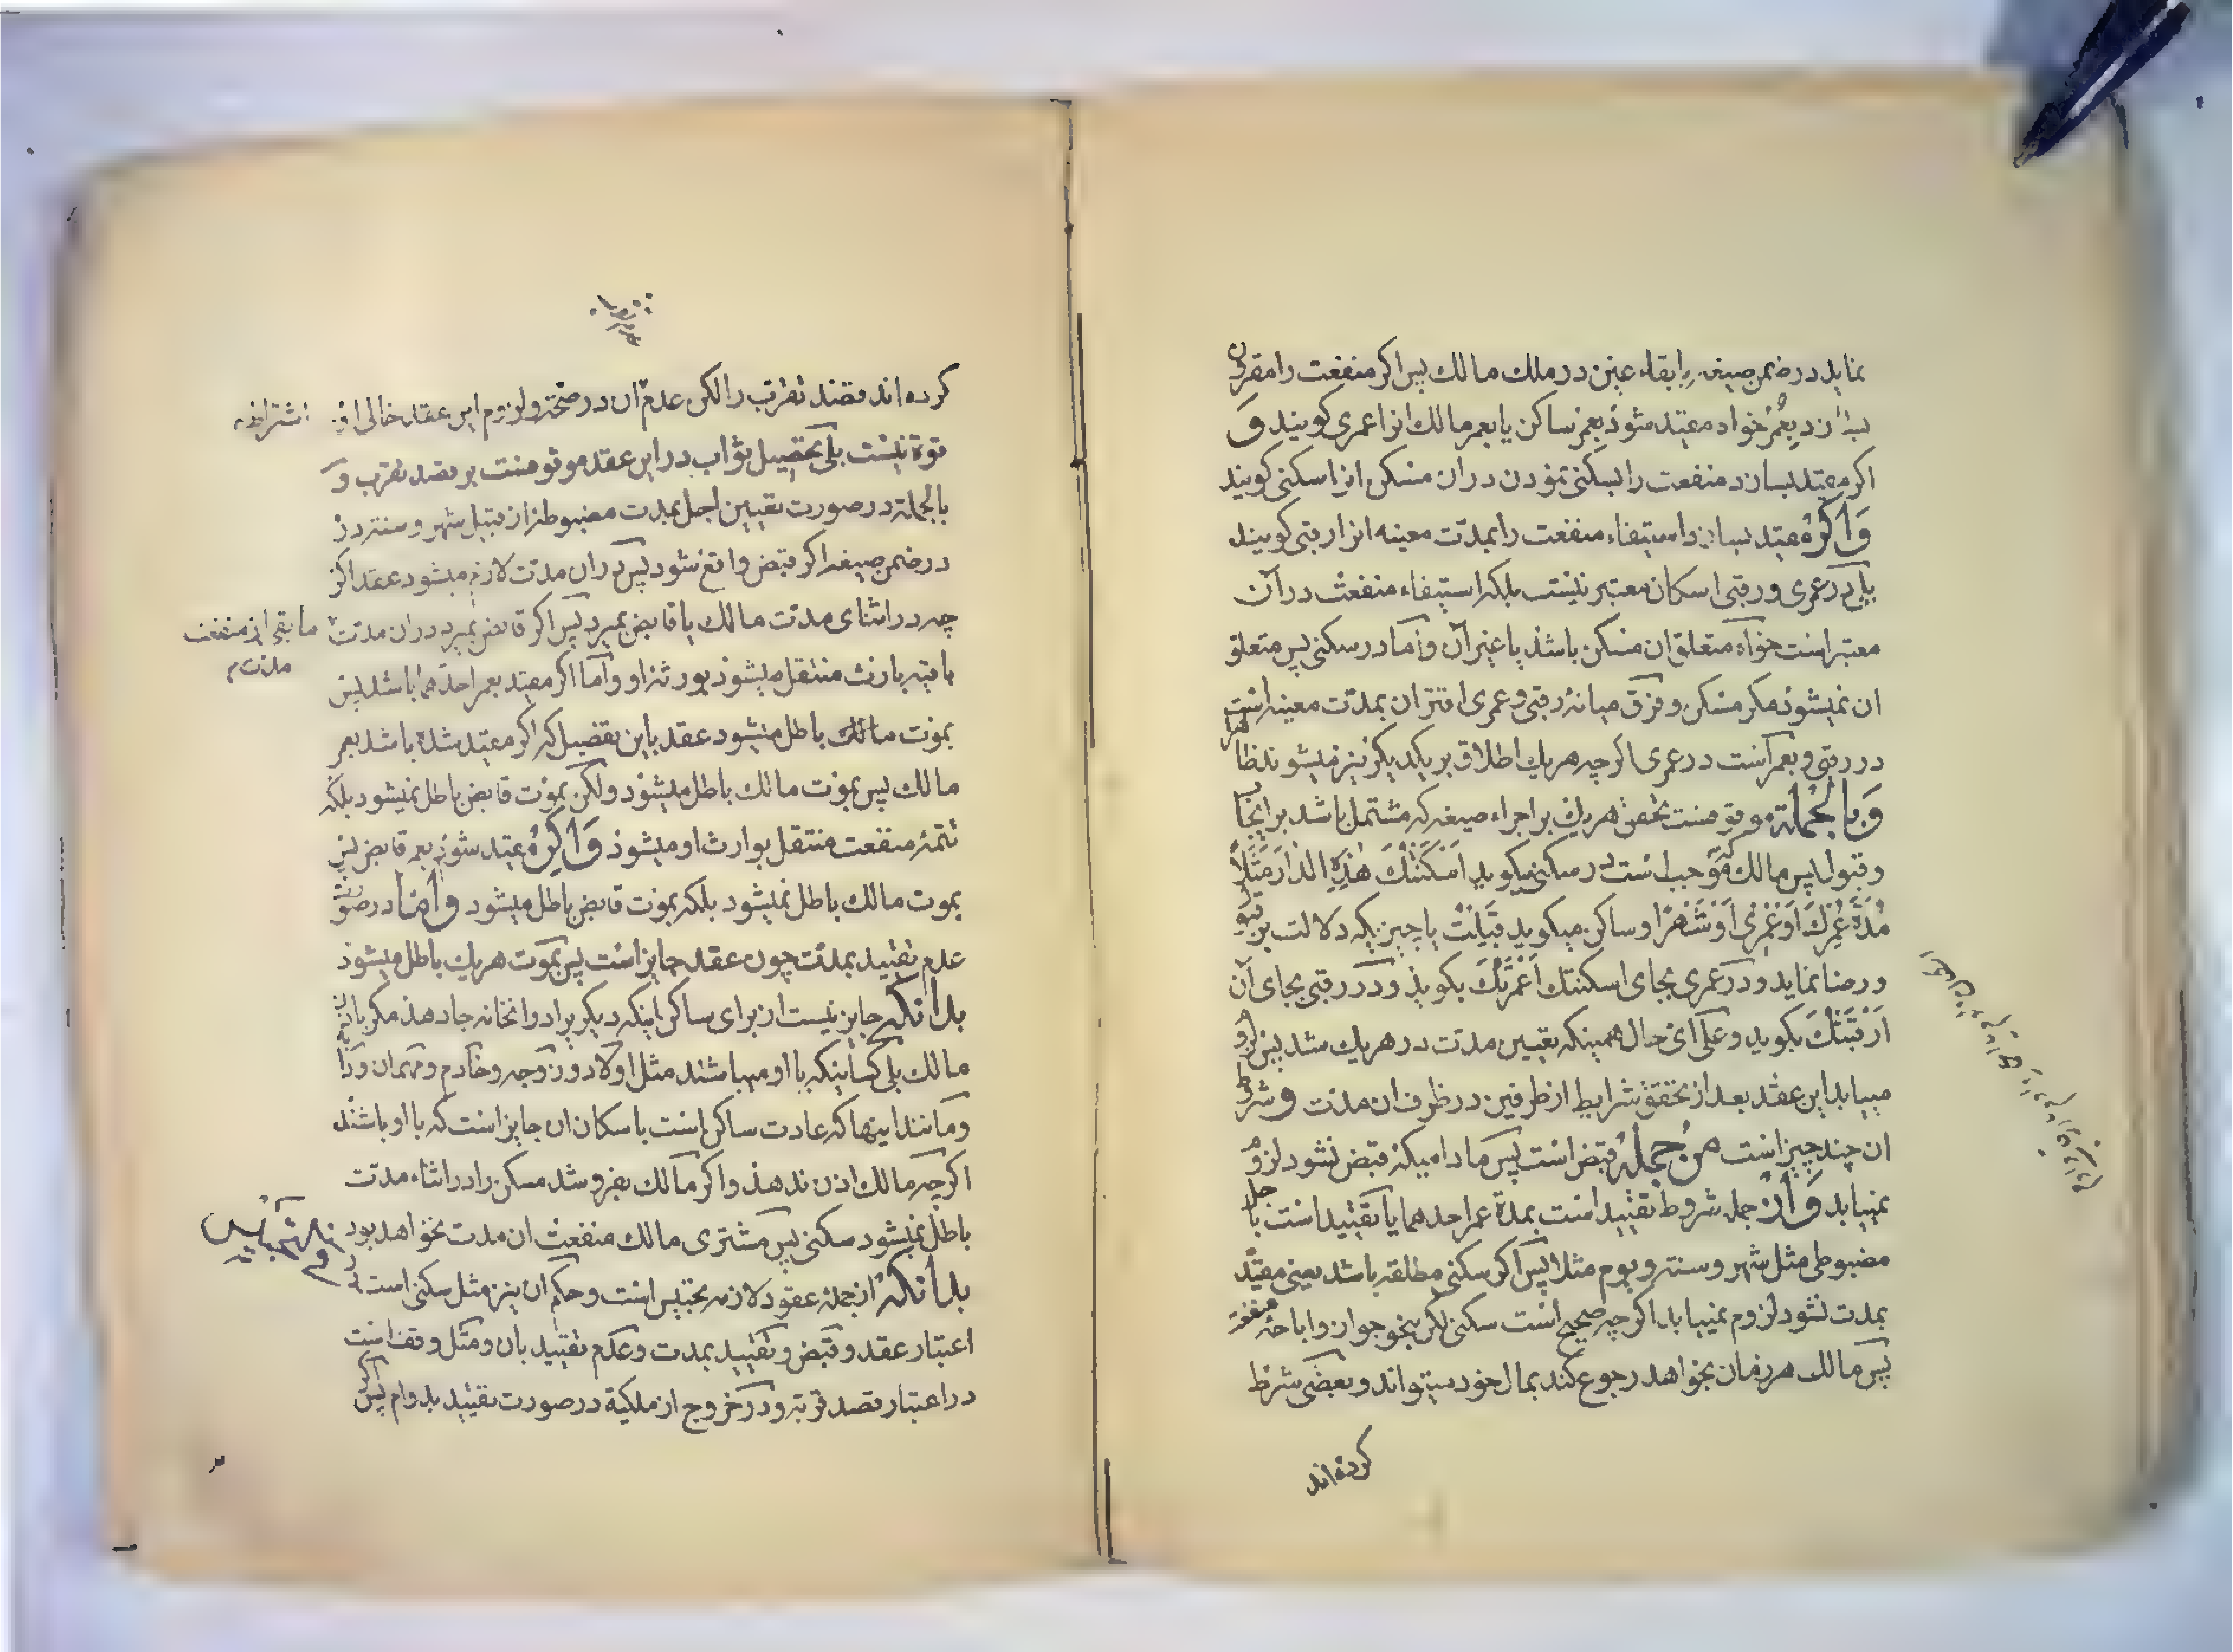 نماید در ضمن صیغه با بقاء عین در ملک مالک پس اگر منفعت را مقرون
بعُمُر خواه مقید شود بعمر ساکن یا بعمر مالک انرا عمری کویند وَ
اکر مقید بسازد منفعت را بسکنی نمودن در ان مسکن انرا سکنی کویند
وَاکر مقید بسازد استیفاء منفعت را بمدّت معینه انرا رقبی کویند
بلی در عمری و رقبی اسکان معتبر نیست بلکه استیفاء منفعت در آن
معتبر است خواه متعلق ان مسکن باشد یا غیر آن و امّا در سکنی پس متعلق
ان نمیشود مکر مسکن و فرق میانهٔ رقبی و عمری اقتران بمدّت معینه است
در رقبی و بعمر است در عمری اکرچه هریک اطلاق بر یکدیکر نیز میشوند ظاهرا
وَبالجُملة موقوفست تحقق هریک بر اجراء صیغه که مشتمل باشد بر ایجاب
و قبول پس مالک که موجب است در سکنی میکوید اَسْکَنْتُکَ هٰذِهِ الدّارَ مَثَلاً
مُدَّةَ عُمْرِکَ اَوْ عُمْرِی اَوْ شَهْرًا و ساکن میکوید قَبِلْتُ یا چیزیکه دلالت بر قبول
و رضا نماید و در عمری بجای اسکنتک اَعْمَرْتُکَ بکوید و در رقبی بجای آن
اَرْقَبْتُکَ بکوید و علی ای حال همینکه تعیین مدت در هریک شد پس لزوم
میباید این عقد بعد از تحقق شرایط از طرفین در ظرف ان مدت و شرط
ان چند چیز است من جمله قبض است پس مادامیکه قبض نشود لزوم
نمییابد وَ از جمله شروط تقیید است بمدة عمر احدهما یا تقیید است باجل
مضبوطی مثل شهر و سنه و یوم مثلا پس اکر سکنی مطلقه باشد یعنی مقیّد
بمدت نشود لزوم نمییابد اکرچه صحیح است سکنی لکن بنحو جواز و اباحهٔ منفعة
پس مالک هر زمان بخواهد رجوع کند بمال خود میتواند و بعضی شرط
کرده‌اند
کرده‌اند قصد تقرب را لکن عدم آن در صحّة و لزوم این عقد خالی از
اشتراط
قوة نیست بلی تحصیل ثواب در این عقد موقوفست بر قصد تقرب و
بالجملة در صورت تعیین اجل بمدت مضبوطه از قبیل شهر و سنه در
در ضمن صیغه اکر قبض واقع شود پس در ان مدّت لازم میشود عقد اکر
چه در اثنای مدّت مالک یا قابض بمیرد پس اکر قابض بمیرد در ان مدّت
ما بقی از منفعت
مدّت
باقیه بارث منتقل میشود بورثهٔ او و امّا اکر مقید بعمر احدهما باشد پس
بموت مالک باطل میشود عقد باین تفصیل که اکر مقید شده باشد بعمر
مالک پس بموت مالک باطل میشود ولکن بموت قابض باطل نمیشود بلکه
تتمهٔ منفعت منتقل بوارث او میشود وَ اکر مقید شود بعمر قابض پس
بموت مالک باطل نمیشود بلکه بموت قابض باطل میشود و امّا در صورت
عدم تقیید بمدّت چون عقد جایز است پس بموت هریک باطل میشود
بدانکه جایز نیست از برای ساکن اینکه دیکریرا در انخانه جا دهد مکر باذن
مالک بلی کسانیکه با او میباشند مثل اولاد و زوجه و خادم و مهمان
و مانند اینها که عادت ساکن است باسکان ان جایز است که با او باشند
اکرچه مالک اذن ندهد و اکر مالک بفروشد مسکن را در اثناء مدّت
باطل نمیشود سکنی پس مشتری مالک منفعت ان مدت نخواهد بود
بدانکه از جملهٔ عقود لازمه تحبیس است و حکم ان نیز مثل سکنی است در
اعتبار عقد و قبض و تقیید بمدت و عدم تقیید بان و مثل وقف است
در اعتبار قصد قربة و در خروج از ملکیة در صورت تقیید بدوام پس اکر